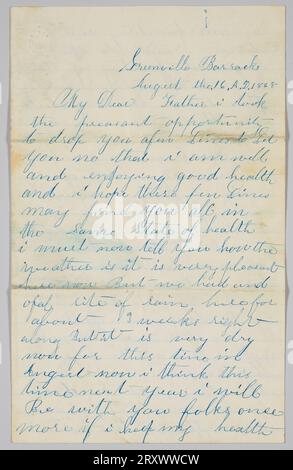 Greenville Barracks
August the 16 A.D. 1868
My Dear Father i took
the pleasant opportunity
to drop you a few Lines to Let
you no that i am well
and enjoying good health
and i hope these few Lines
may find you all in
the Same State of health
i must now tell you how the
weather is it is very pleasant
here now But we have had
of rain here for
about 3 weeks right
along But it is very dry
now for this time in
August now i think this
time next year i will
Be with you folks once
more if i keep my health
alamy
Image ID: 2RXXWCW
www.alamy.com